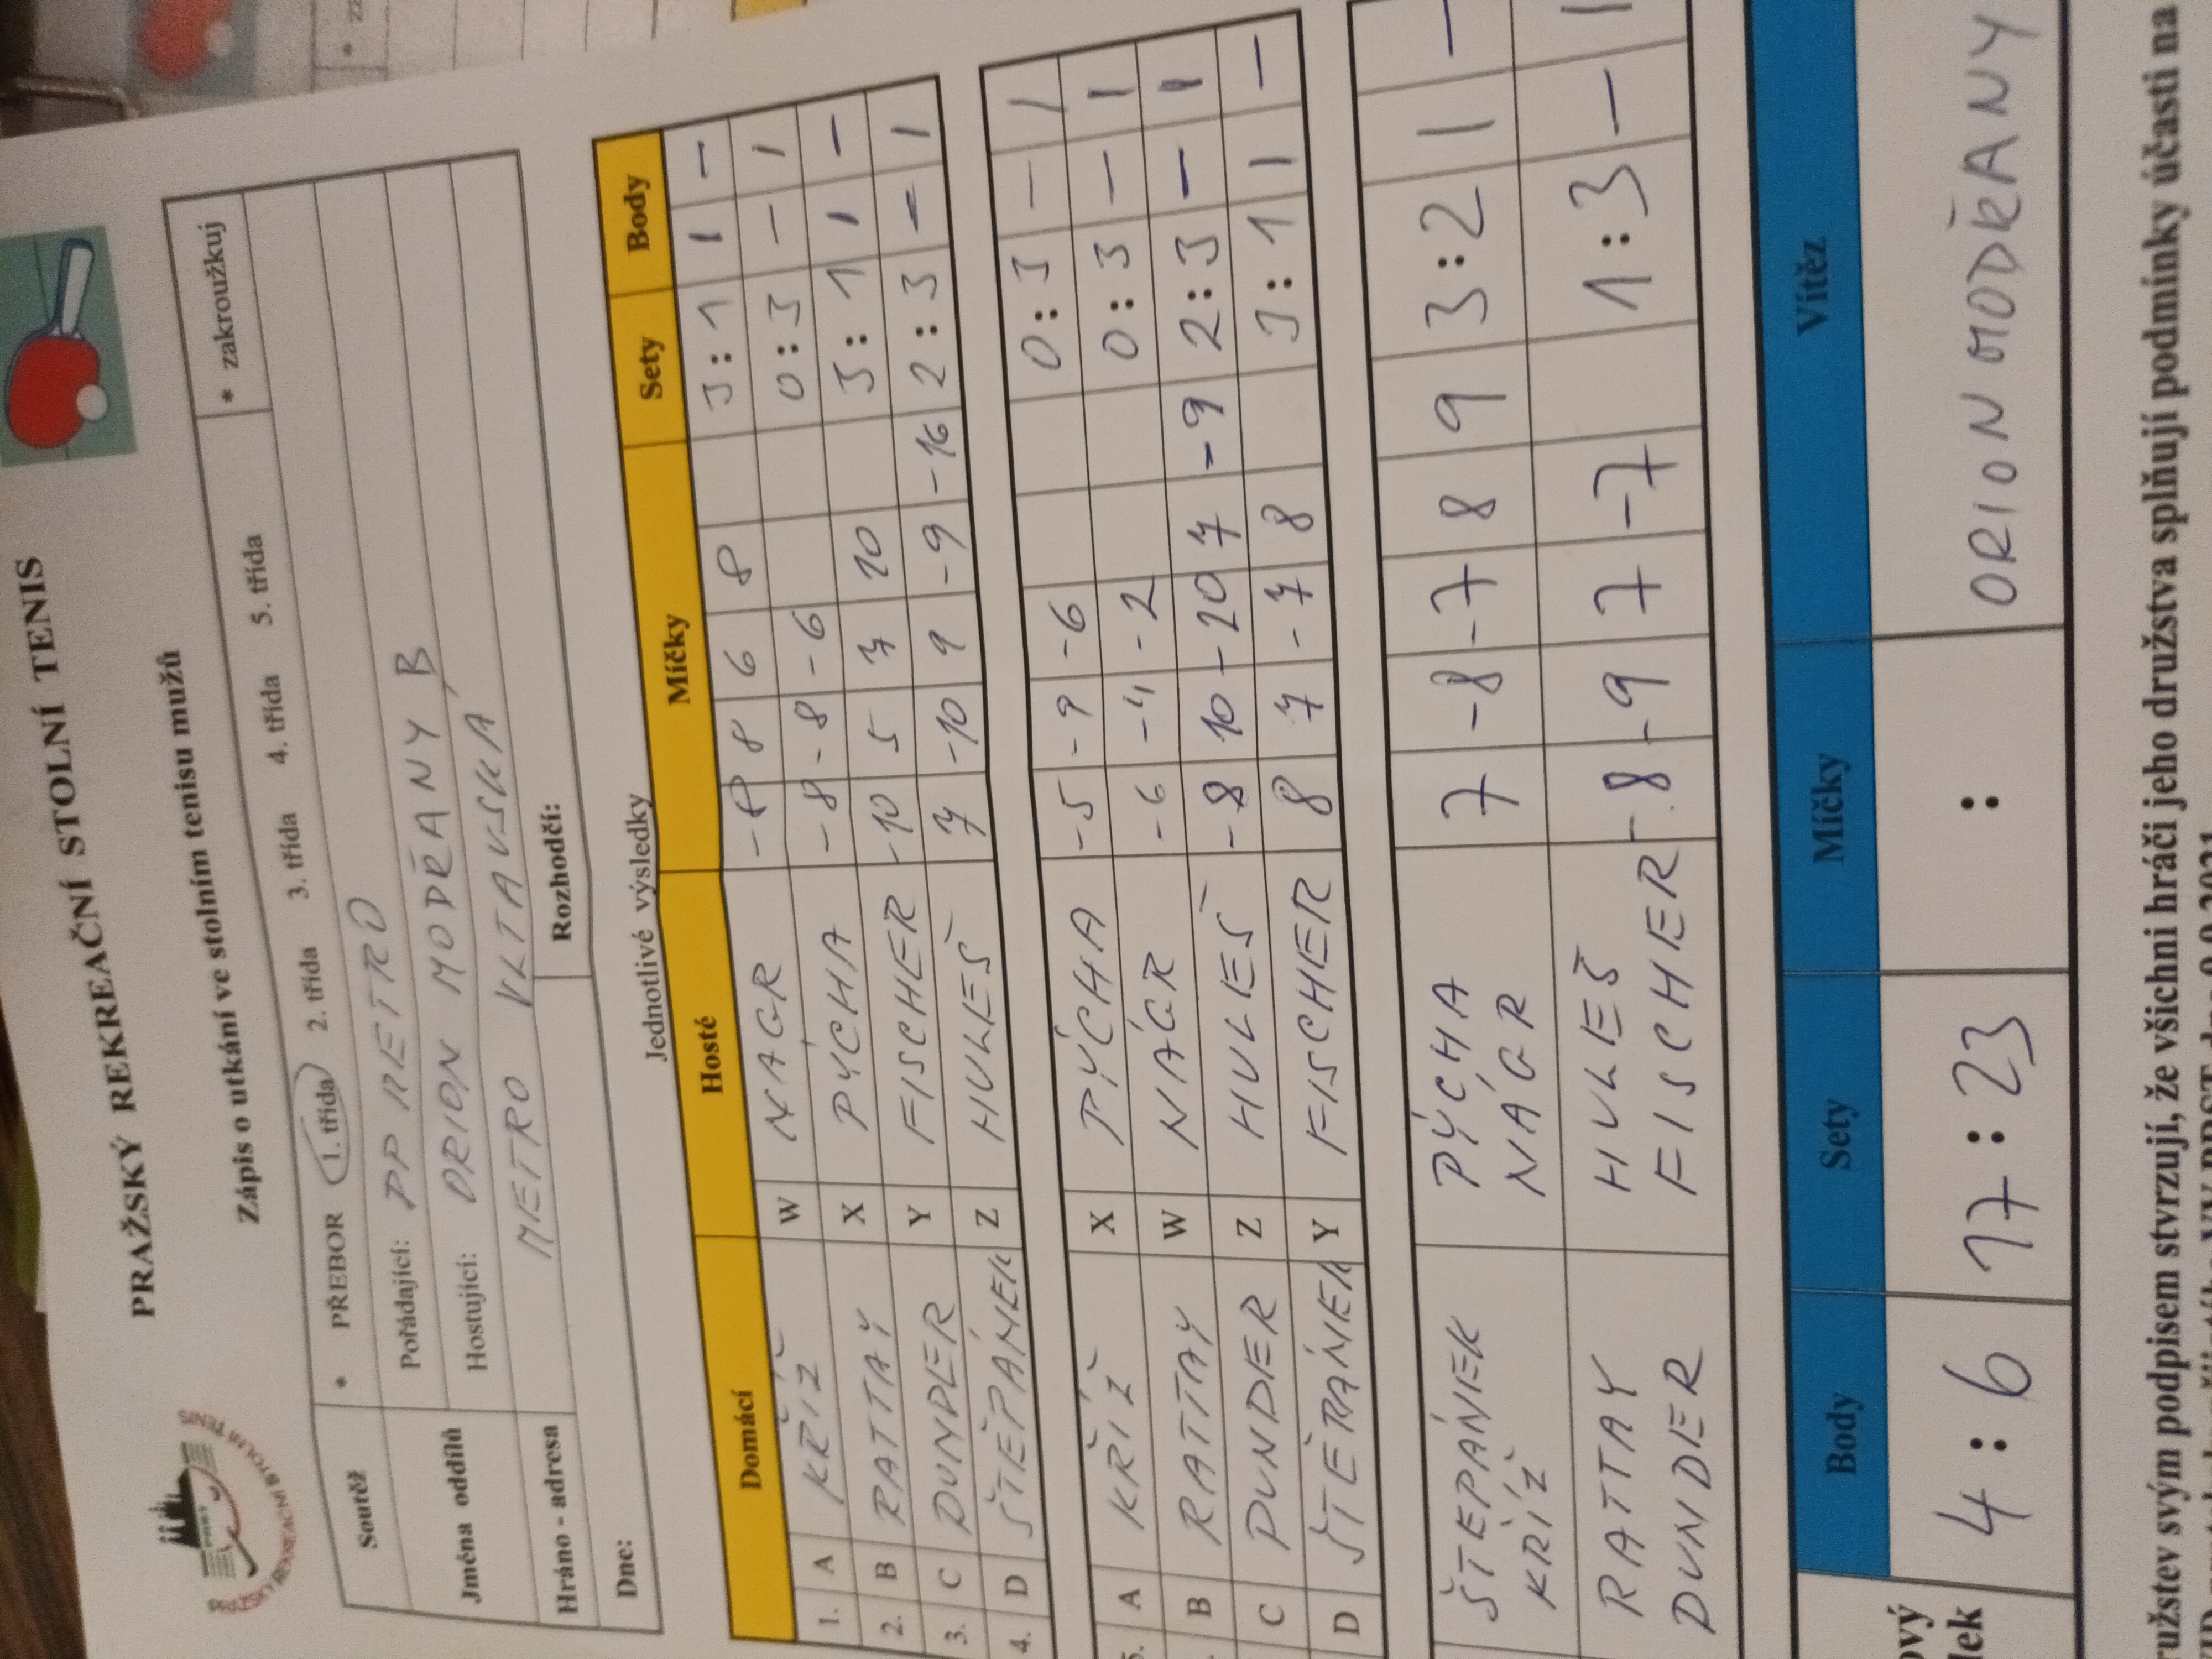 PRAŽSKÝ REKREAČNÍ STOLNÍ TENIS
Zápis o utkání ve stolním tenisu mužů
Soutěž * PŘEBOR 1. třída 2. třída 3. třída 4. třída 5. třída * zakroužkuj
Jména oddílů Pořádající: PP METRO
Hostující: ORION MODŘANY B
Hráno - adresa METRO VLTAVSKÁ
Dne: Rozhodčí:
Jednotlivé výsledky
Domácí Hosté Míčky Sety Body
1. A KŘÍŽ W NAGR -8 8 6 8 3:1 1 -
2. B RATTAY X PÝCHA -8 -8 -6 0:3 - 1
3. C DUNDER Y FISCHER -10 5 7 10 3:1 1 -
4. D ŠTĚPÁNEK Z HULEŠ 7 -10 9 -9 -16 2:3 - 1
5. A KŘÍŽ X PÝCHA -5 -9 -6 0:3 - 1
B RATTAY W NÁGR -6 -4 -2 0:3 - 1
C DUNDER Z HULEŠ -8 10 -10 7 -9 2:3 - 1
D ŠTĚPÁNEK Y FISCHER 8 7 -7 8 3:1 1 -
ŠTĚPÁNEK PÝCHA 7 -8 -7 8 9 3:2 1 -
KŘÍŽ NÁGR
RATTAY HULEŠ -8 -9 7 -7 1:3 - 1
DUNDER FISCHER
Body Sety Míčky Vítěz
ový
lek 4:6 17:23 : ORION MODŘANY
ružstev svým podpisem stvrzují, že všichni hráči jeho družstva splňují podmínky účasti na